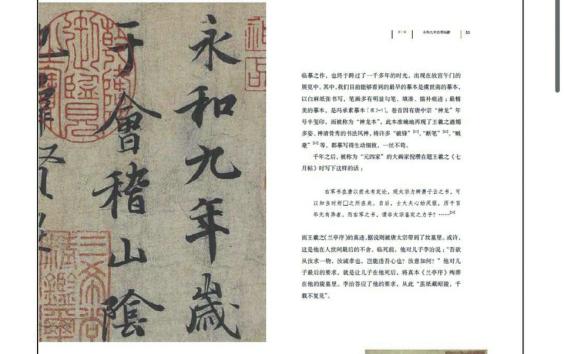 永和九年歲
于會稽山陰
51
临摹之作，也终于跨过了一千多年的时光，出现在故宫午门的
展览中。其中，我们目前能够看到的最早的摹本是虞世南的摹本，
以白麻纸张书写，笔画多有明显勾笔、填凑、描补痕迹；最精
美的摹本，是冯承素摹本
卷首因有唐中宗“神龙”年
号半玺印，而被称为“神龙本”，此本准确地再现了王羲之遒媚
多姿、神清骨秀的书法风神，将许多“破锋”
“断笔”
“贼
毫”
等，都摹写得生动细致，一丝不苟。
千年之后，被称为“元四家”的大画家倪瓒在题王羲之《七
月帖》时写下这样的话：
右军书在唐以前未有定论，观太宗力辨萧子云之书，可
以知当时好
之所在矣。自后，士大夫心始厌服，历千百
年无有异者。而右军之书，谓非太宗鉴定之力乎？……
而王羲之《兰亭序》的真迹，据说则被唐太宗带到了坟墓里，或许，
这是他在人世间最后的不舍。临死前，他对儿子李治说：“吾欲
从汝求一物，汝诚孝也，岂能违吾心也？汝意如何？”他对儿
子最后的要求，就是让儿子在他死后，将真本《兰亭序》殉葬
在他的陵墓里。李治答应了他的要求，从此“茧纸藏昭陵，千
载不复见”。